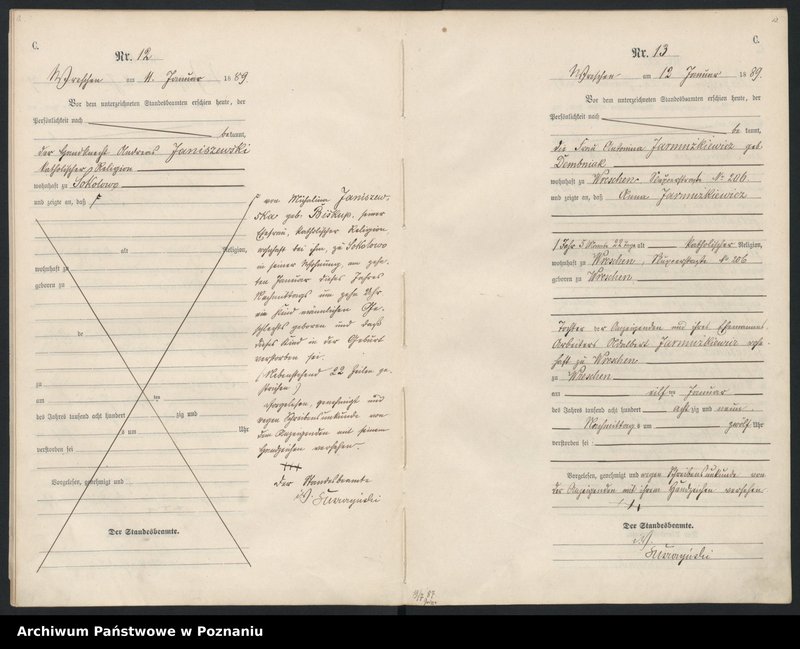 C.
Nr. 12
Wreschen am 11. Januar 1889.
Vor dem unterzeichneten Standesbeamten erschien heute, der
Persönlichkeit nach
bekannt,
der Handknecht Andreas Janiszewski
katholischer Religion
wohnhaft zu Sokolowo
und zeigte an, daß
alt Religion,
wohnhaft zu
geboren zu
de
zu
am ten
des Jahres tausend acht hundert zig und
s um Uhr
verstorben sei
Vorgelesen, genehmigt und
Der Standesbeamte.
von Michalina Janiszew-
ska geb. Biskup, seiner
Ehefrau, katholischer Religion
wohnhaft bei ihm, zu Sokolowo
in seiner Wohnung am zehn-
ten Januar dieses Jahres
Nachmittags um zehn Uhr
ein Kind männlichen Ge-
schlechts geboren und daß
dieses Kind in der Geburt
verstorben sei.
(Nebenstehend 22 Zeilen ge-
strichen)
Vorgelesen, genehmigt und
wegen Schreibensunkunde von
dem Anzeigenden mit seinem
Handzeichen versehen.
+++
Der Standesbeamte
C.
Nr. 13
Wreschen am 12 Januar 1889.
Vor dem unterzeichneten Standesbeamten erschien heute, der
Persönlichkeit nach
be kannt,
die Frau Antonina Jarmużkiewicz geb.
Dembniak
wohnhaft zu Wreschen, No 206
und zeigte an, daß Anna Jarmużkiewicz
1 Jahr 5 Monate 22 Tage alt katholischer Religion,
wohnhaft zu Wreschen, No 206
geboren zu Wreschen
Tochter der Anzeigenden und ihres Ehemannes
Arbeiters Adalbert Jarmużkiewicz wohn-
haft zu Wreschen
zu Wreschen
am eilf ten Januar
des Jahres tausend acht hundert acht zig und neun
Nachmittag s um zwölf Uhr
verstorben sei
Vorgelesen, genehmigt und wegen Schreibensunkunde von
der Anzeigenden mit ihrem Handzeichen versehen
+++
Der Standesbeamte.
Archiwum Państwowe w Poznaniu